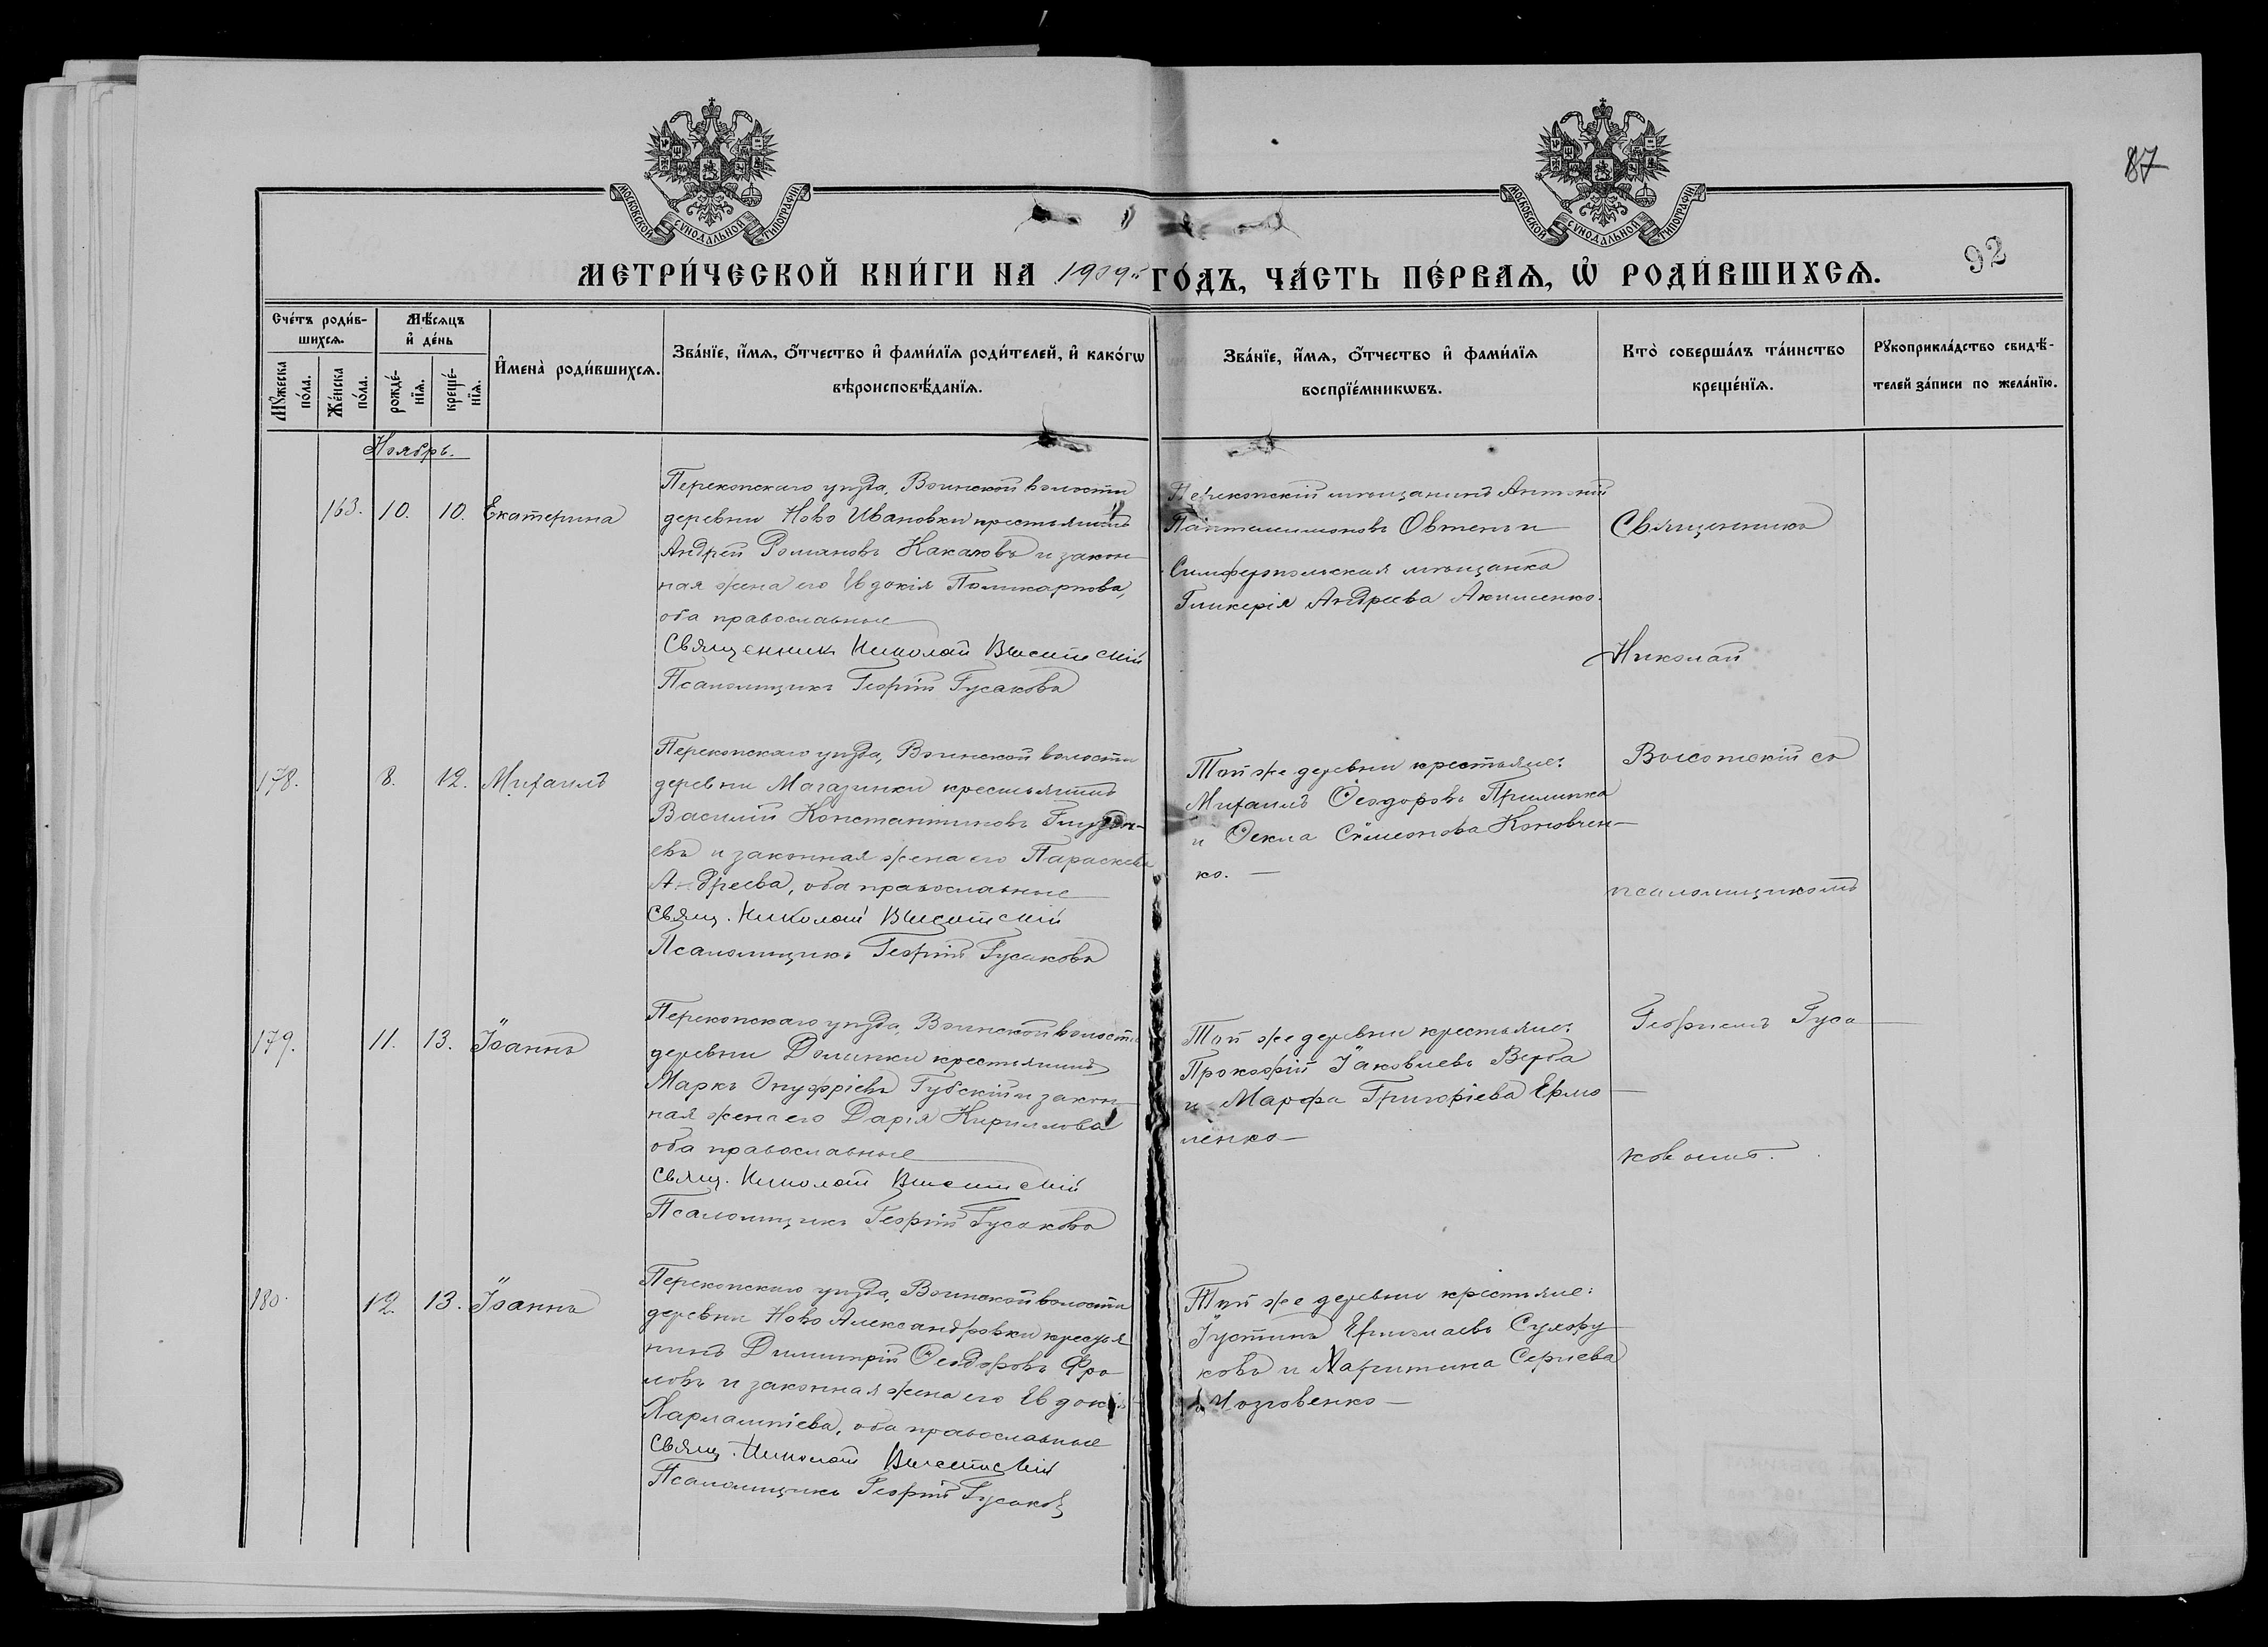 87
92
МОСКОВСКОЙ СѴНОДАЛЬНОЙ ТИПОГРАФІИ
МОСКОВСКОЙ СѴНОДАЛЬНОЙ ТИПОГРАФІИ
МЕТРИ́ЧЕСКОЙ КНИ́ГИ НА 1909й ГО́ДЪ, ЧА́СТЬ ПЕ́РВАѦ, Ѡ҆ РОДИ́ВШИХСѦ.
Сче́тъ роди́в-
шихсѧ.
Мꙋ́жеска по́ла.
Же́нска по́ла.
Мѣ́сѧцъ
и҆ де́нь
рожде́-
нїѧ.
креще́-
нїѧ.
И҆мена̀ роди́вшихсѧ.
Зва́нїе, и҆́мѧ, ѻ҆́тчество и҆ фами́лїѧ роди́телей, и҆ како́гѡ
вѣроисповѣ́данїѧ.
Зва́нїе, и҆́мѧ, ѻ҆́тчество и҆ фами́лїѧ
воспрїе́мникѡвъ.
Кто̀ соверша́лъ та́инство
креще́нїѧ.
Рꙋкоприкла́дство свидѣ́-
телей за́писи по жела́нїю.
Ноябрь.
163. 10. 10. Екатерина
Перекопскаго уѣзда, Воинской волости
деревни Ново Ивановки крестьянинъ
Андрей Романовъ Какаловъ и закон
ная жена его Евдокія Поликарпова,
оба православные
Священник Николай Высотскій
Псаломщикъ Георгій Гусаковъ
Перекопскій мѣщанинъ Антоній
Пантелеимоновъ и
Симферопольская мѣщанка
Гликерія Андреева Акименко.
Священникъ
Николай
178. 8. 12. Михаилъ
Перекопскаго уѣзда, Воинской волости
деревни Магазинки крестьянинъ
Василій Константиновъ
евъ и законная жена его Параскева
Андреева, оба православные
Свящ. Николай Высотскій
Псаломщикъ Георгій Гусаковъ
Той же деревни крестьяне:
Михаилъ Ѳеодоровъ Прилипка
и Ѳекла Сѵмеонова Коновчен-
ко. —
Высотскій съ
псаломщикомъ
179. 11. 13. Іоаннъ
Перекопскаго уѣзда, Воинской волости
деревни Долинки крестьянинъ
Маркъ Онуфріевъ Губскій и закон
ная жена его Дарія Кириллова
оба православные
Свящ. Николай Высотскій
Псаломщикъ Георгій Гусаковъ
Той же деревни крестьяне:
Прокофій Іаковлевъ Верба
и Марфа Григоріева Ермо
ленко —
Георгіемъ Гуса
ковымъ.
180. 12. 13. Іоаннъ
Перекопскаго уѣзда, Воинской волости
деревни Ново Александровки крестья
нинъ Димитрій Ѳеодоровъ Фро
ловъ и законная жена его Евдокія
Харлампіева, оба православные
Свящ. Николай Высотскій
Псаломщикъ Георгій Гусаковъ
Той же деревни крестьяне:
Іустинъ Ермолаевъ Сухору
ковъ и Харитина Сергіева
Лозовенко —